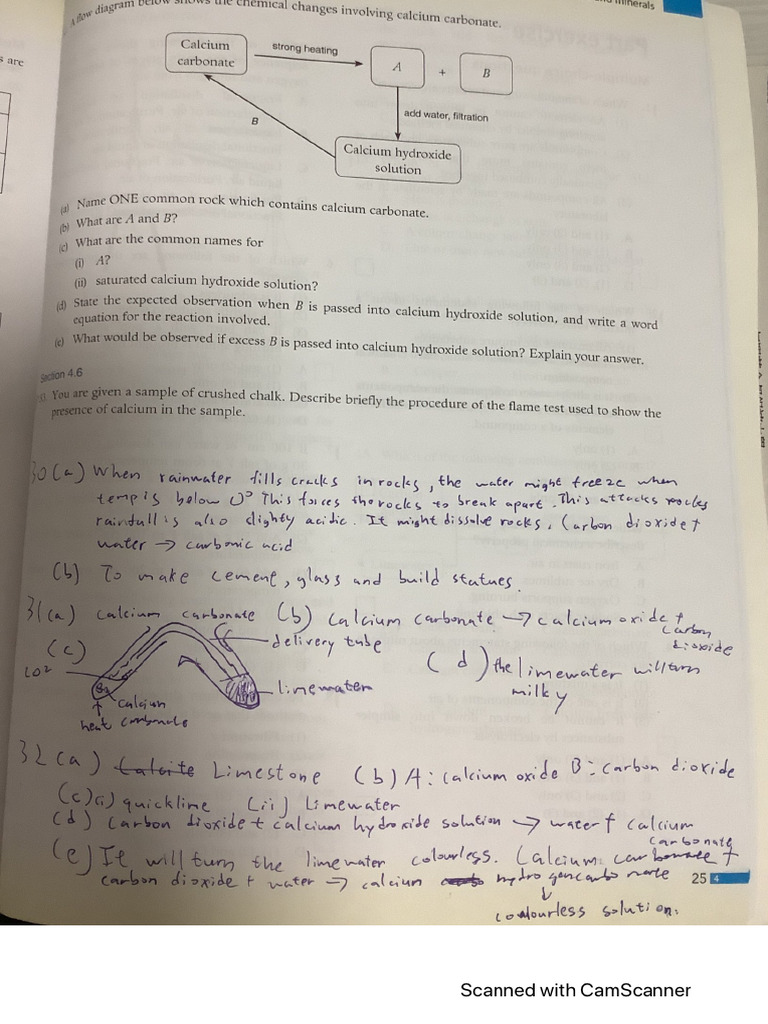 minerals
A flow diagram below shows the chemical changes involving calcium carbonate.
s are
Calcium
carbonate
strong heating
A
+
B
add water, filtration
B
Calcium hydroxide
solution
(a) Name ONE common rock which contains calcium carbonate.
(b) What are A and B?
(c) What are the common names for
(i) A?
(ii) saturated calcium hydroxide solution?
(d) State the expected observation when B is passed into calcium hydroxide solution, and write a word
equation for the reaction involved.
(e) What would be observed if excess B is passed into calcium hydroxide solution? Explain your answer.
Section 4.6
You are given a sample of crushed chalk. Describe briefly the procedure of the flame test used to show the
presence of calcium in the sample.
30(a) When rainwater fills cracks in rocks, the water might freeze when
temp is below 0° This forces the rocks to break apart. This attacks rocks
rainfall is also slightly acidic. It might dissolve rocks. Carbon dioxide +
water → carbonic acid
(b) To make cement, glass and build statues.
31(a) calcium carbonate (b) calcium carbonate → calcium oxide +
carbon
dioxide
(c)
delivery tube
CO2
limewater
calcium
heat carbonate
(d) the limewater will turn
milky
32(a) Calcite Limestone (b) A: calcium oxide B: carbon dioxide
(c)(i) quickline (ii) Limewater
(d) carbon dioxide + calcium hydroxide solution → water + calcium
carbonate
(e) It will turn the limewater colourless. Calcium carbonate +
carbon dioxide + water → calcium hydrogencarbonate
↓
colourless solution.
25 4
Scanned with CamScanner